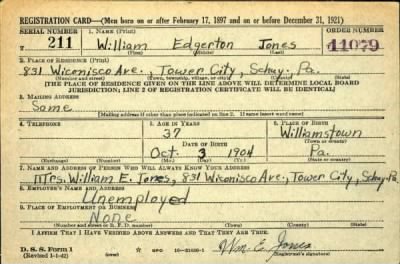 REGISTRATION CARD—(Men born on or after February 17, 1897 and on or before December 31, 1921)
SERIAL NUMBER 1. NAME (Print) ORDER NUMBER
211 William Edgerton Jones 11079
(First) (Middle) (Last)
2. PLACE OF RESIDENCE (Print)
831 Wiconisco Ave., Tower City, Schuy. Pa.
(Number and street) (Town, township, village, or city) (County) (State)
[THE PLACE OF RESIDENCE GIVEN ON THE LINE ABOVE WILL DETERMINE LOCAL BOARD
JURISDICTION; LINE 2 OF REGISTRATION CERTIFICATE WILL BE IDENTICAL]
3. MAILING ADDRESS
Same
(Mailing address if other than place indicated on line 2. If same insert word same)
4. TELEPHONE 5. AGE IN YEARS 6. PLACE OF BIRTH
37 Williamstown
DATE OF BIRTH (Town or county)
Oct. 3 1904 Pa.
(Exchange) (Number) (Mo.) (Day) (Yr.) (State or country)
7. NAME AND ADDRESS OF PERSON WHO WILL ALWAYS KNOW YOUR ADDRESS
Mrs. William E. Jones, 831 Wiconisco Ave., Tower City, Schuy. Pa
8. EMPLOYER'S NAME AND ADDRESS
Unemployed
9. PLACE OF EMPLOYMENT OR BUSINESS
None
(Number and street or R. F. D. number) (Town) (County) (State)
I AFFIRM THAT I HAVE VERIFIED ABOVE ANSWERS AND THAT THEY ARE TRUE.
D. S. S. Form 1 GPO Wm. E. Jones
(Revised 1-1-42) (Registrant's signature)